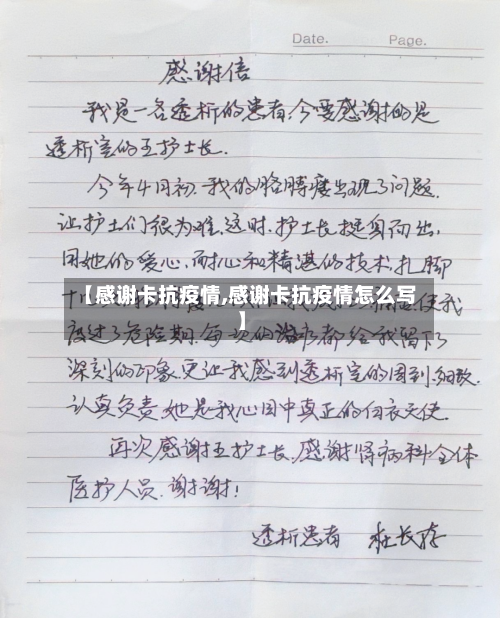 Date. Page.
感谢信
我是一名透析的患者,今要感谢的是
透析室的王护士长.
今年4月初.我的胳膊瘘出现了问题.
让护士们很为难.这时.护士长挺身而出,
用她的爱心,耐心和精湛的技术.扎脚
【感谢卡抗疫情,感谢卡抗疫情怎么写
】
使我
度过了危险期.每一次的治疗都给我留下了
深刻的印象.更让我感到透析室的周到.细致.
认真负责.她是我心目中真正的白衣天使.
再次感谢王护士长.感谢肾病科全体
医护人员.谢谢!
透析患者 杜长